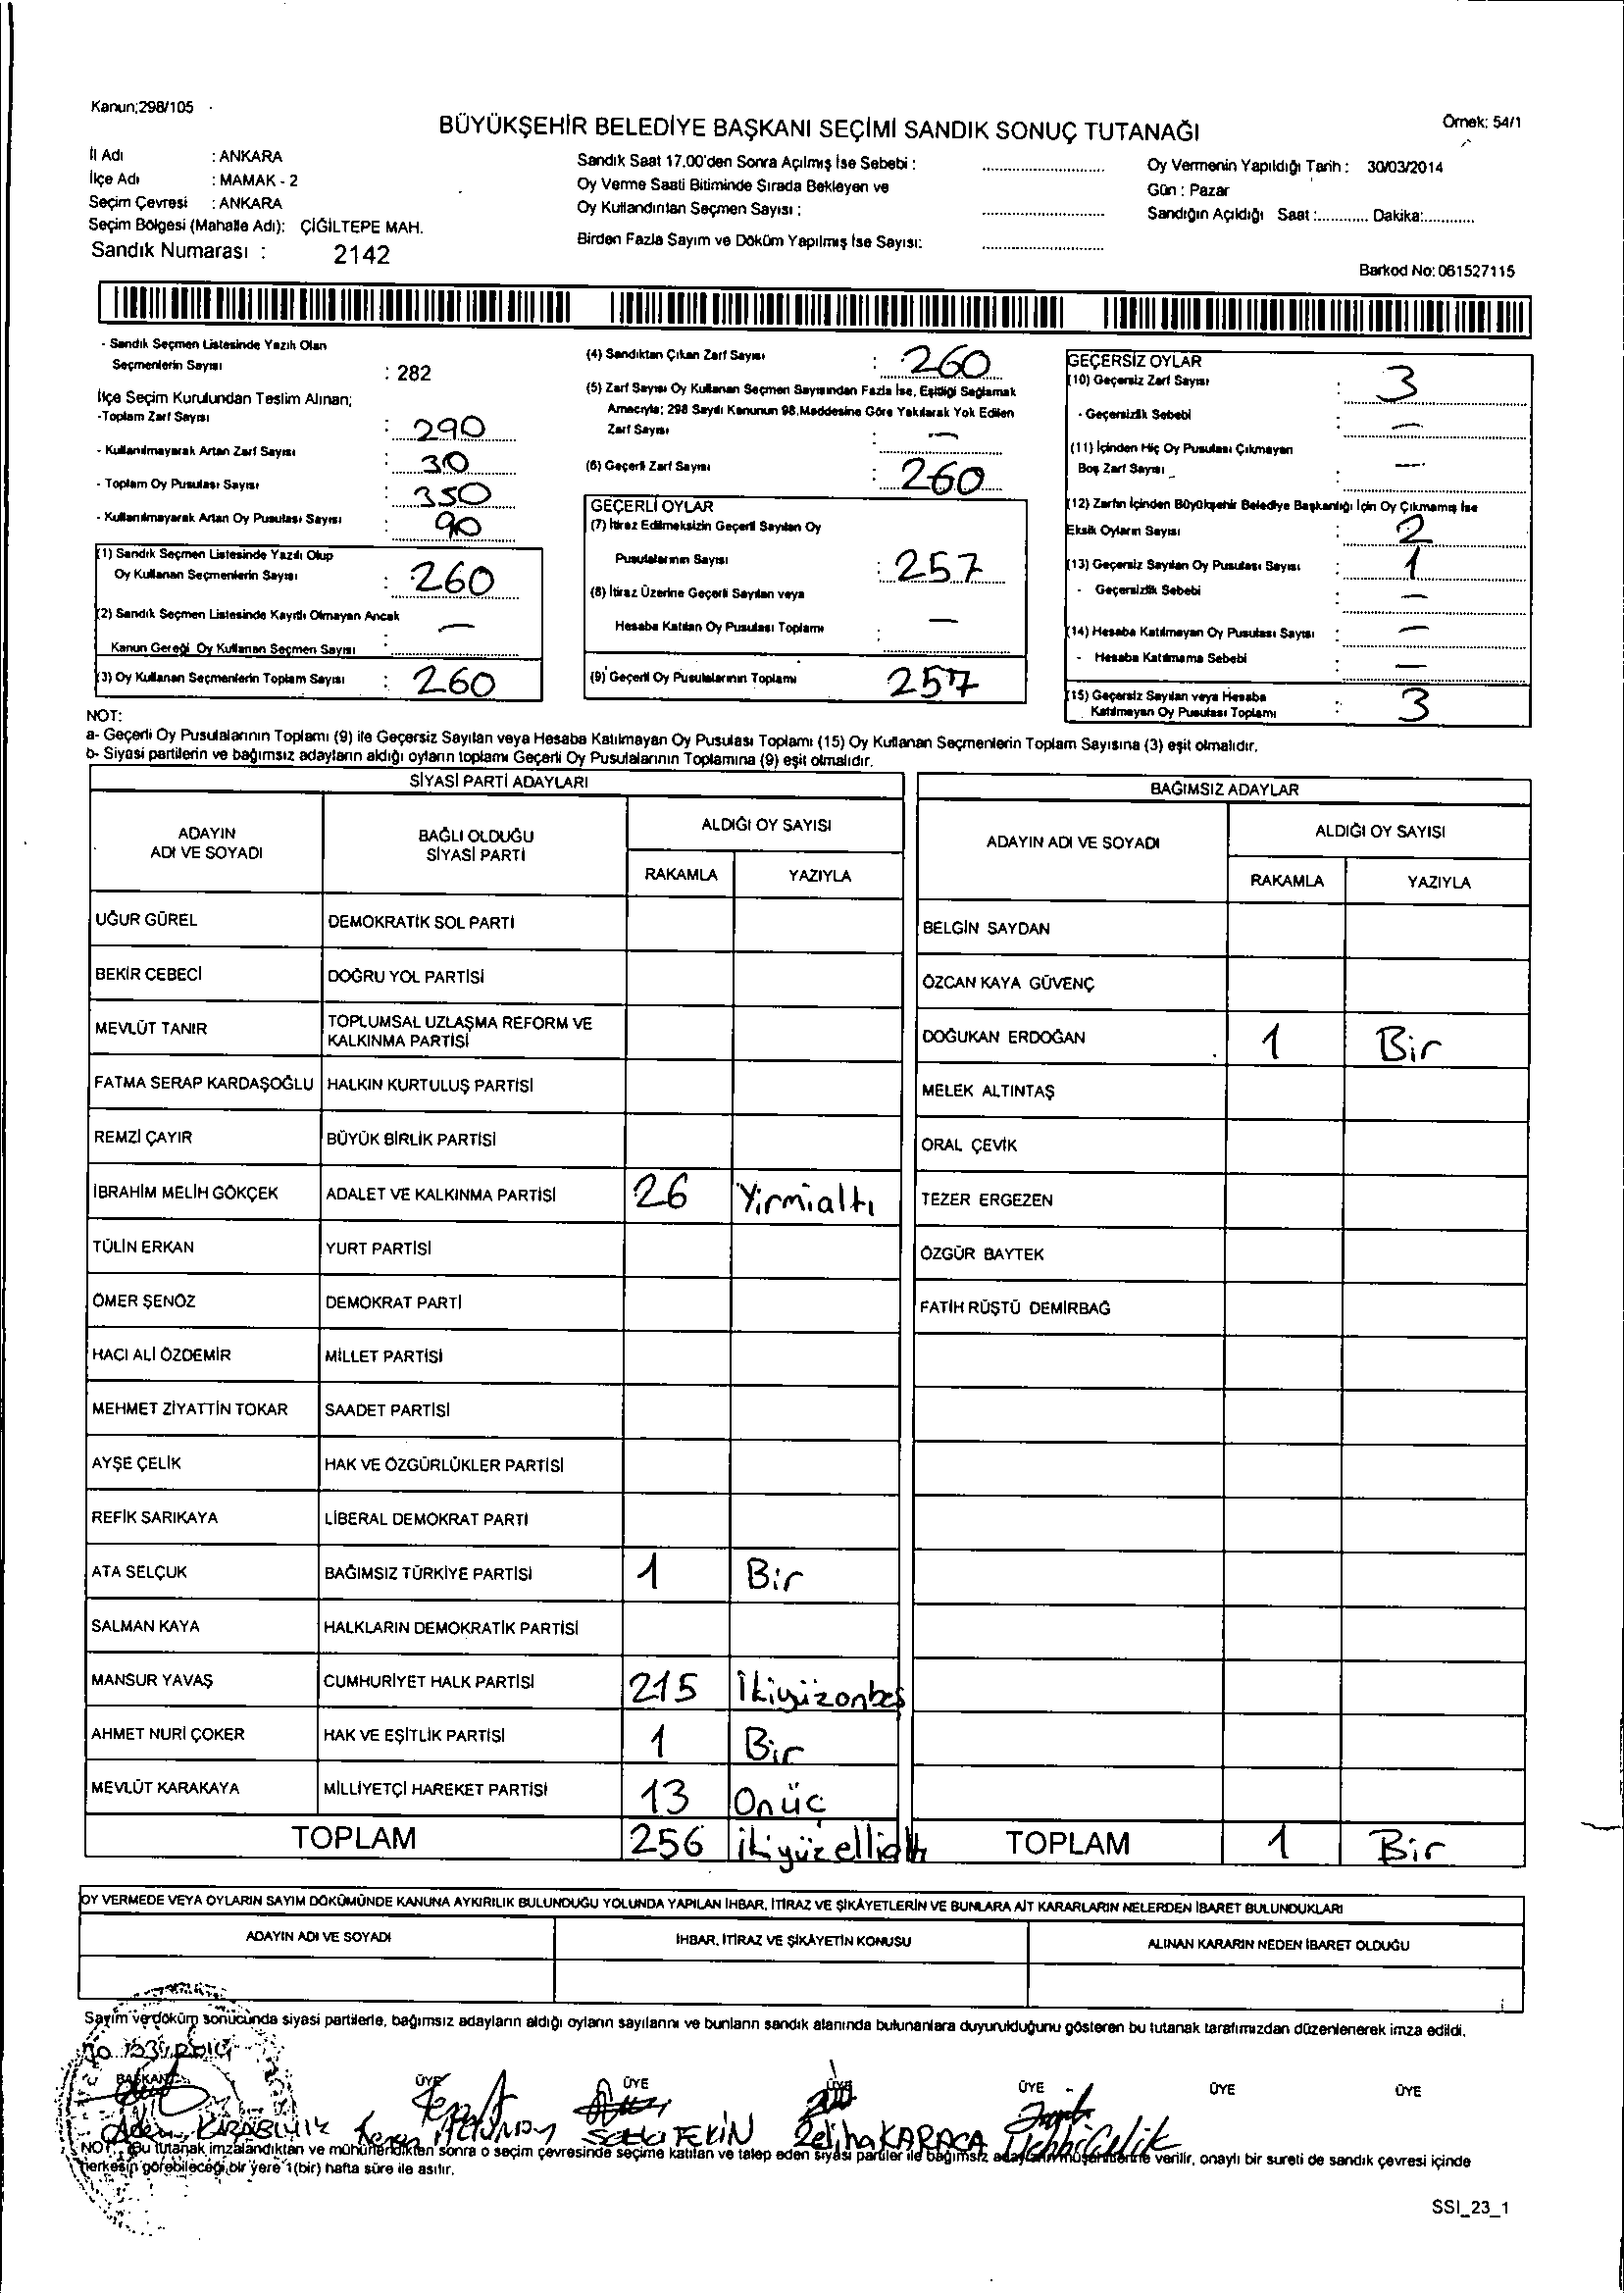 Kanun;298/105
BÜYÜKŞEHİR BELEDİYE BAŞKANI SEÇİMİ SANDIK SONUÇ TUTANAĞI
Örnek: 54/1
İl Adı : ANKARA
İlçe Adı : MAMAK - 2
Seçim Çevresi : ANKARA
Seçim Bölgesi (Mahalle Adı): ÇİĞİLTEPE MAH.
Sandık Numarası : 2142
Sandık Saat 17.00'den Sonra Açılmış İse Sebebi : ..............................
Oy Verme Saati Bitiminde Sırada Bekleyen ve
Oy Kullandırılan Seçmen Sayısı : ..............................
Birden Fazla Sayım ve Döküm Yapılmış İse Sayısı: ..............................
Oy Vermenin Yapıldığı Tarih : 30/03/2014
Gün : Pazar
Sandığın Açıldığı Saat :............ Dakika:............
Barkod No: 061527115
- Sandık Seçmen Listesinde Yazılı Olan
Seçmenlerin Sayısı : 282
İlçe Seçim Kurulundan Teslim Alınan;
-Toplam Zarf Sayısı : 290
- Kullanılmayarak Artan Zarf Sayısı : 30
- Toplam Oy Pusulası Sayısı : 350
- Kullanılmayarak Artan Oy Pusulası Sayısı : 90
(1) Sandık Seçmen Listesinde Yazılı Olup
Oy Kullanan Seçmenlerin Sayısı : 260
(2) Sandık Seçmen Listesinde Kayıtlı Olmayan Ancak
Kanun Gereği Oy Kullanan Seçmen Sayısı : —
(3) Oy Kullanan Seçmenlerin Toplam Sayısı : 260
(4) Sandıktan Çıkan Zarf Sayısı : 260
(5) Zarf Sayısı Oy Kullanan Seçmen Sayısından Fazla İse, Eşitliği Sağlamak
Amacıyla; 298 Sayılı Kanunun 98.Maddesine Göre Yakılarak Yok Edilen
Zarf Sayısı : —
(6) Geçerli Zarf Sayısı : 260
GEÇERLİ OYLAR
(7) İtiraz Edilmeksizin Geçerli Sayılan Oy
Pusulalarının Sayısı : 257
(8) İtiraz Üzerine Geçerli Sayılan veya
Hesaba Katılan Oy Pusulası Toplamı : —
(9) Geçerli Oy Pusulalarının Toplamı 257
GEÇERSİZ OYLAR
(10) Geçersiz Zarf Sayısı : 3
- Geçersizlik Sebebi : —
(11) İçinden Hiç Oy Pusulası Çıkmayan
Boş Zarf Sayısı : —
(12) Zarfın İçinden Büyükşehir Belediye Başkanlığı İçin Oy Çıkmamış İse
Eksik Oyların Sayısı : 2
(13) Geçersiz Sayılan Oy Pusulası Sayısı : 1
- Geçersizlik Sebebi : —
(14) Hesaba Katılmayan Oy Pusulası Sayısı : —
- Hesaba Katılmama Sebebi : —
(15) Geçersiz Sayılan veya Hesaba
Katılmayan Oy Pusulası Toplamı : 3
NOT:
a- Geçerli Oy Pusulalarının Toplamı (9) ile Geçersiz Sayılan veya Hesaba Katılmayan Oy Pusulası Toplamı (15) Oy Kullanan Seçmenlerin Toplam Sayısına (3) eşit olmalıdır.
b- Siyasi partilerin ve bağımsız adayların aldığı oyların toplamı Geçerli Oy Pusulalarının Toplamına (9) eşit olmalıdır.
SİYASİ PARTİ ADAYLARI
ADAYIN ADI VE SOYADI
BAĞLI OLDUĞU SİYASİ PARTİ
ALDIĞI OY SAYISI
RAKAMLA YAZIYLA
UĞUR GÜREL DEMOKRATİK SOL PARTİ
BEKİR CEBECİ DOĞRU YOL PARTİSİ
MEVLÜT TANIR TOPLUMSAL UZLAŞMA REFORM VE KALKINMA PARTİSİ
FATMA SERAP KARDAŞOĞLU HALKIN KURTULUŞ PARTİSİ
REMZİ ÇAYIR BÜYÜK BİRLİK PARTİSİ
İBRAHİM MELİH GÖKÇEK ADALET VE KALKINMA PARTİSİ 26 Yirmialtı
TÜLİN ERKAN YURT PARTİSİ
ÖMER ŞENÖZ DEMOKRAT PARTİ
HACI ALİ ÖZDEMİR MİLLET PARTİSİ
MEHMET ZİYATTİN TOKAR SAADET PARTİSİ
AYŞE ÇELİK HAK VE ÖZGÜRLÜKLER PARTİSİ
REFİK SARIKAYA LİBERAL DEMOKRAT PARTİ
ATA SELÇUK BAĞIMSIZ TÜRKİYE PARTİSİ 1 Bir
SALMAN KAYA HALKLARIN DEMOKRATİK PARTİSİ
MANSUR YAVAŞ CUMHURİYET HALK PARTİSİ 215 İkiyüzonbeş
AHMET NURİ ÇOKER HAK VE EŞİTLİK PARTİSİ 1 Bir
MEVLÜT KARAKAYA MİLLİYETÇİ HAREKET PARTİSİ 13 Onüç
TOPLAM 256 ikiyüzellialtı
BAĞIMSIZ ADAYLAR
ADAYIN ADI VE SOYADI
ALDIĞI OY SAYISI
RAKAMLA YAZIYLA
BELGİN SAYDAN
ÖZCAN KAYA GÜVENÇ
DOĞUKAN ERDOĞAN 1 Bir
MELEK ALTINTAŞ
ORAL ÇEVİK
TEZER ERGEZEN
ÖZGÜR BAYTEK
FATİH RÜŞTÜ DEMİRBAĞ
TOPLAM 1 Bir
OY VERMEDE VEYA OYLARIN SAYIM DÖKÜMÜNDE KANUNA AYKIRILIK BULUNDUĞU YOLUNDA YAPILAN İHBAR, İTİRAZ VE ŞİKÂYETLERİN VE BUNLARA AİT KARARLARIN NELERDEN İBARET BULUNDUKLARI
ADAYIN ADI VE SOYADI İHBAR, İTİRAZ VE ŞİKÂYETİN KONUSU ALINAN KARARIN NEDEN İBARET OLDUĞU
Sayım ve döküm sonucunda siyasi partilerle, bağımsız adayların aldığı oyların sayılarını ve bunların sandık alanında bulunanlara duyurulduğunu gösteren bu tutanak tarafımızdan düzenlenerek imza edildi.
BAŞKAN ÜYE ÜYE ÜYE ÜYE ÜYE ÜYE
Zeliha KARACA
NOT: Bu tutanak imzalandıktan ve mühürlendikten sonra o seçim çevresinde seçime katılan ve talep eden siyasi partiler ile bağımsız adayların müşahitlerine verilir, onaylı bir sureti de sandık çevresi içinde
herkesin görebileceği bir yere 1(bir) hafta süre ile asılır.
SSI_23_1